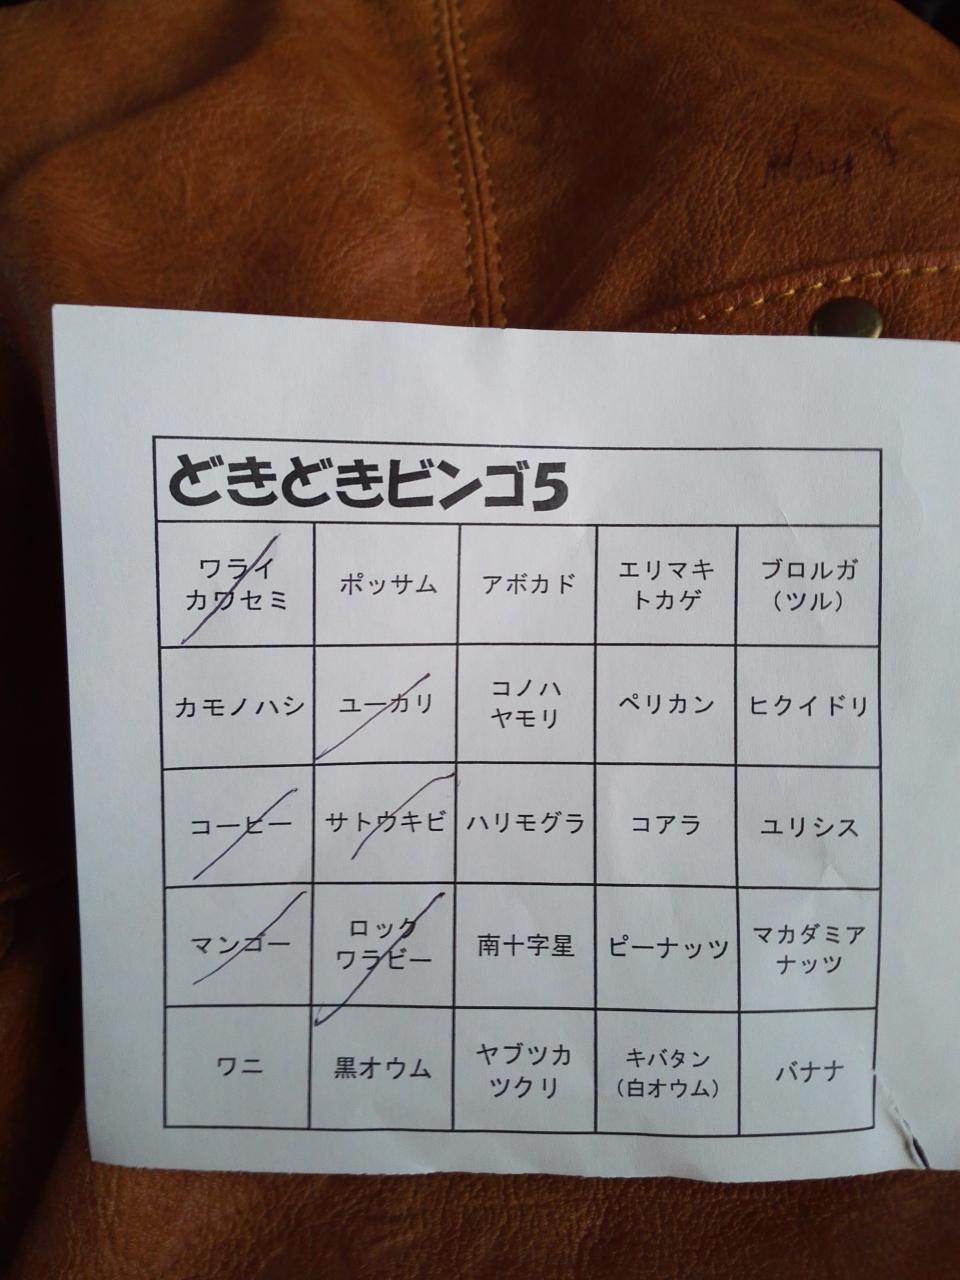 どきどきビンゴ5
ワライ
カワセミ
ポッサム
アボカド
エリマキ
トカゲ
ブロルガ
（ツル）
カモノハシ
ユーカリ
コノハ
ヤモリ
ペリカン
ヒクイドリ
コーヒー
サトウキビ
ハリモグラ
コアラ
ユリシス
マンゴー
ロック
ワラビー
南十字星
ピーナッツ
マカダミア
ナッツ
ワニ
黒オウム
ヤブツカ
ツクリ
キバタン
（白オウム）
バナナ